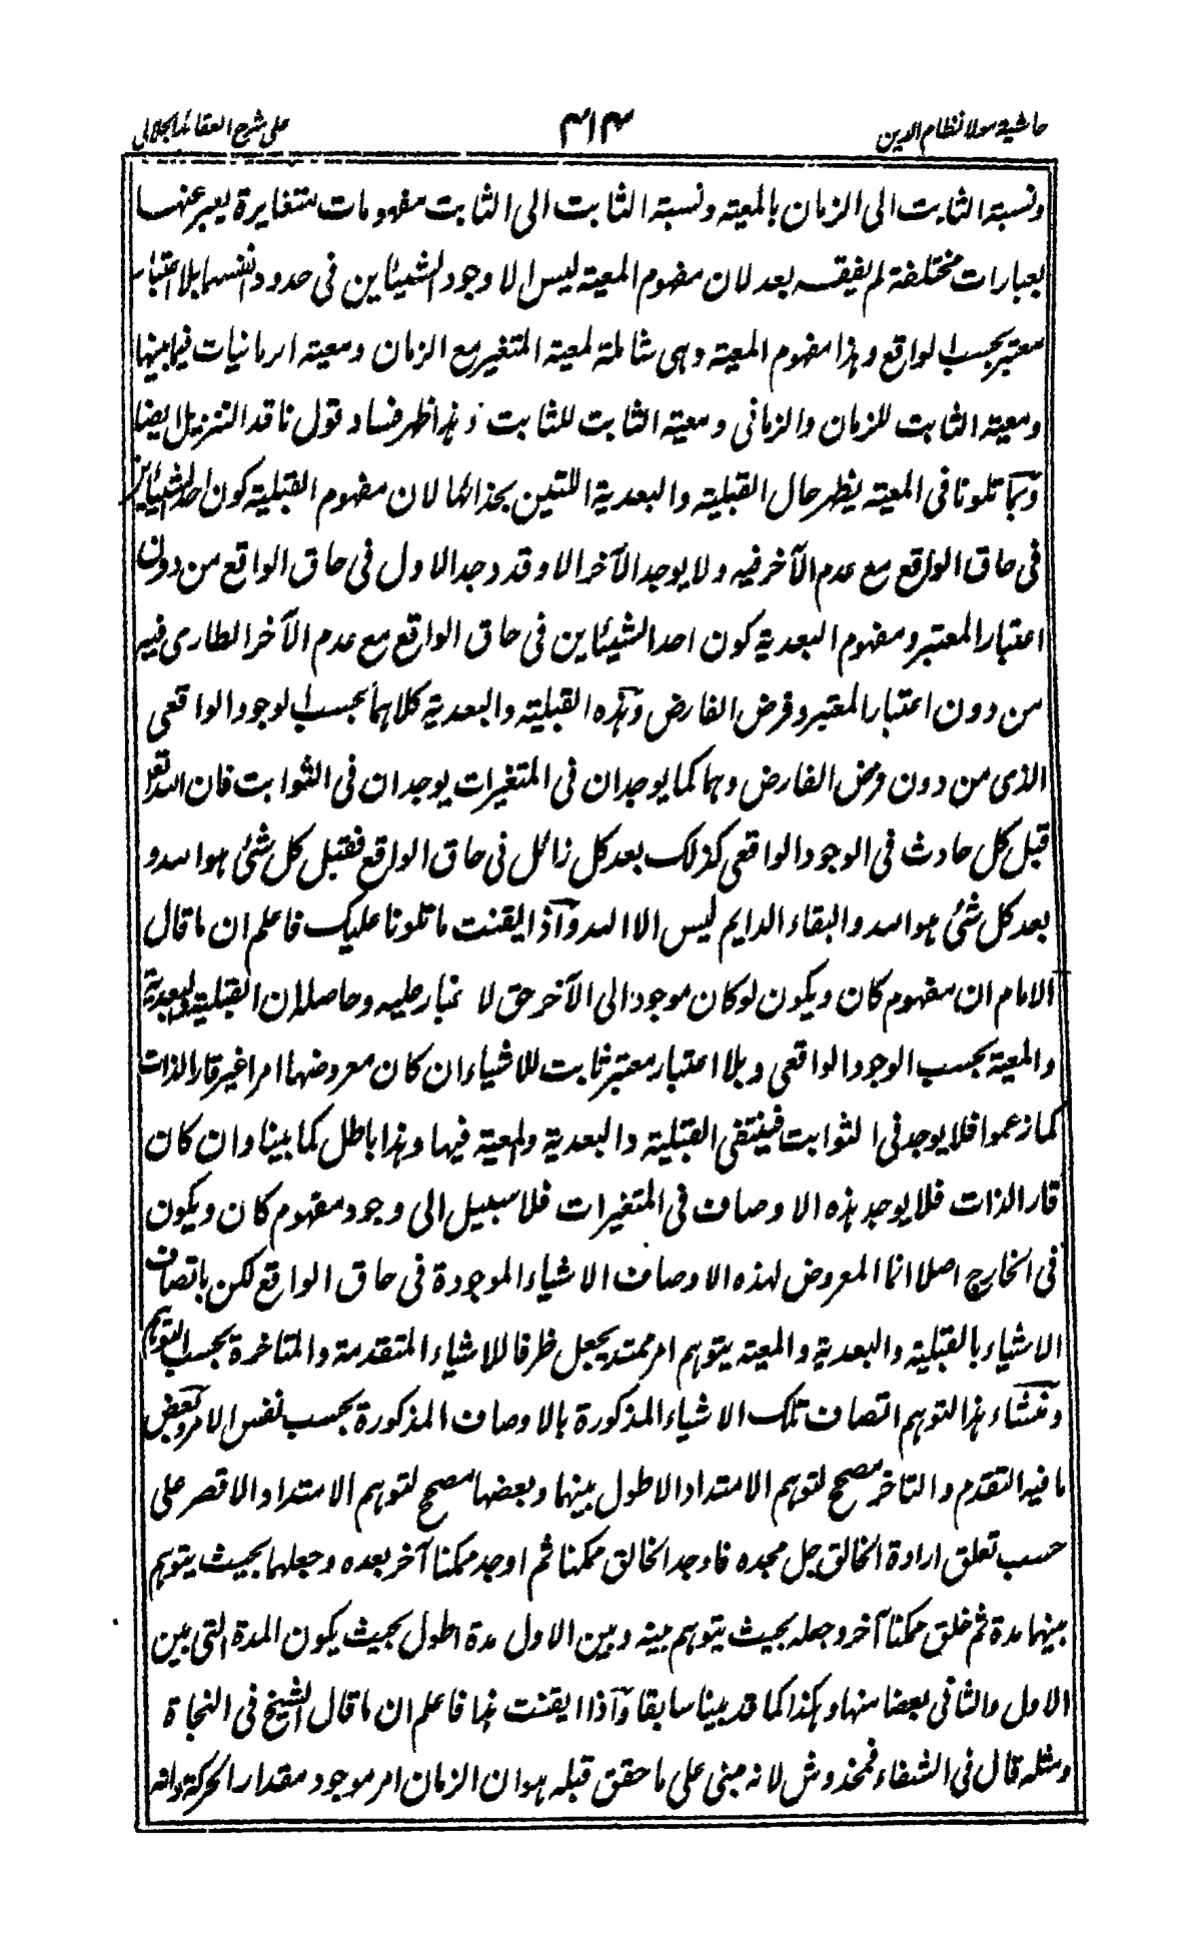 حاشية مولانا نظام الدين
٣١٤
على شرح العقائد الجلالى
ونسبة الثابت الى الزمان بالمعية ونسبة الثابت الى الثابت مفهومات متغايرة يعبر عنها
بعبارات مختلفة لم يفقه بعد لان مفهوم المعية ليس الا وجود الشيئاين فى حدود انفسهما بلا اعتبار
معتبر بحسب الواقع وهذا مفهوم المعية وهى شاملة لمعية المتغير مع الزمان ومعية الزمانيات فيما بينها
ومعية الثابت للزمان والزمانى ومعية الثابت للثابت وبهذا ظهر فساد قول ناقد التنزيل ايضا
وبما تلونا فى المعية يظهر حال القبلية والبعدية اللتين بحذائها لان مفهوم القبلية كون احد الشيئاين
فى حاق الواقع مع عدم الآخر فيه ولا يوجد الآخر الا وقد وجد الاول فى حاق الواقع من دون
اعتبار المعتبر ومفهوم البعدية كون احد الشيئاين فى حاق الواقع مع عدم الآخر الطارى فيه
من دون اعتبار المعتبر وفرض الفارض وهذه القبلية والبعدية كلاهما بحسب الوجود الواقعى
الذى من دون فرض الفارض وهما كما يوجدان فى المتغيرات يوجدان فى الثوابت فان الله تعالى
قبل كل حادث فى الوجود الواقعى كذلك بعد كل زائل فى حاق الواقع فقبل كل شئ هو الله و
بعد كل شئ هو الله والبقاء الدايم ليس الا الله وآذا ايقنت ما تلونا عليك فاعلم ان ما قال
الامام ان مفهوم كان ويكون لو كان موجودا الى الآخر حق لا غبار عليه وحاصله ان القبلية والبعدية
والمعية بحسب الوجود الواقعى وبلا اعتبار معتبر ثابت للاشياء ان كان معروضها امرا غير قار الذات
كما زعموا فلا يوجد فى الثوابت فينتفى القبلية والبعدية والمعية فيها وهذا باطل كما بينا وان كان
قار الذات فلا يوجد هذه الاوصاف فى المتغيرات فلا سبيل الى وجود مفهوم كان ويكون
فى الخارج اصلا انما المعروض لهذه الاوصاف الاشياء الموجودة فى حاق الواقع لكن باتصاف
الاشياء بالقبلية والبعدية والمعية يتوهم امر ممتد يجعل ظرفا للاشياء المتقدمة والمتاخرة بحسب التوهم
ومنشاء هذا التوهم اتصاف تلك الاشياء المذكورة بالاوصاف المذكورة بحسب نفس الامر وبعض
ما فيه التقدم والتاخر مصحح لتوهم الامتداد الاطول بينهما وبعضها مصحح لتوهم الامتداد الاقصر على
حسب تعلق ارادة الخالق جل مجده فاوجد الخالق ممكنا ثم اوجد ممكنا آخر بعده وجعلهما بحيث يتوهم
بينهما مدة ثم خلق ممكنا آخر وجعله بحيث يتوهم بينه وبين الاول مدة اطول بحيث يكون المدة التى بين
الاول والثانى بعضا منها وهكذا كما قد بينا سابقا وآذا ايقنت هذا فاعلم ان ما قال الشيخ فى النجاة
ومثله قال فى الشفاء فمخدوش لانه مبنى على ما حقق قبله هو ان الزمان امر موجود مقدار الحركة وانه